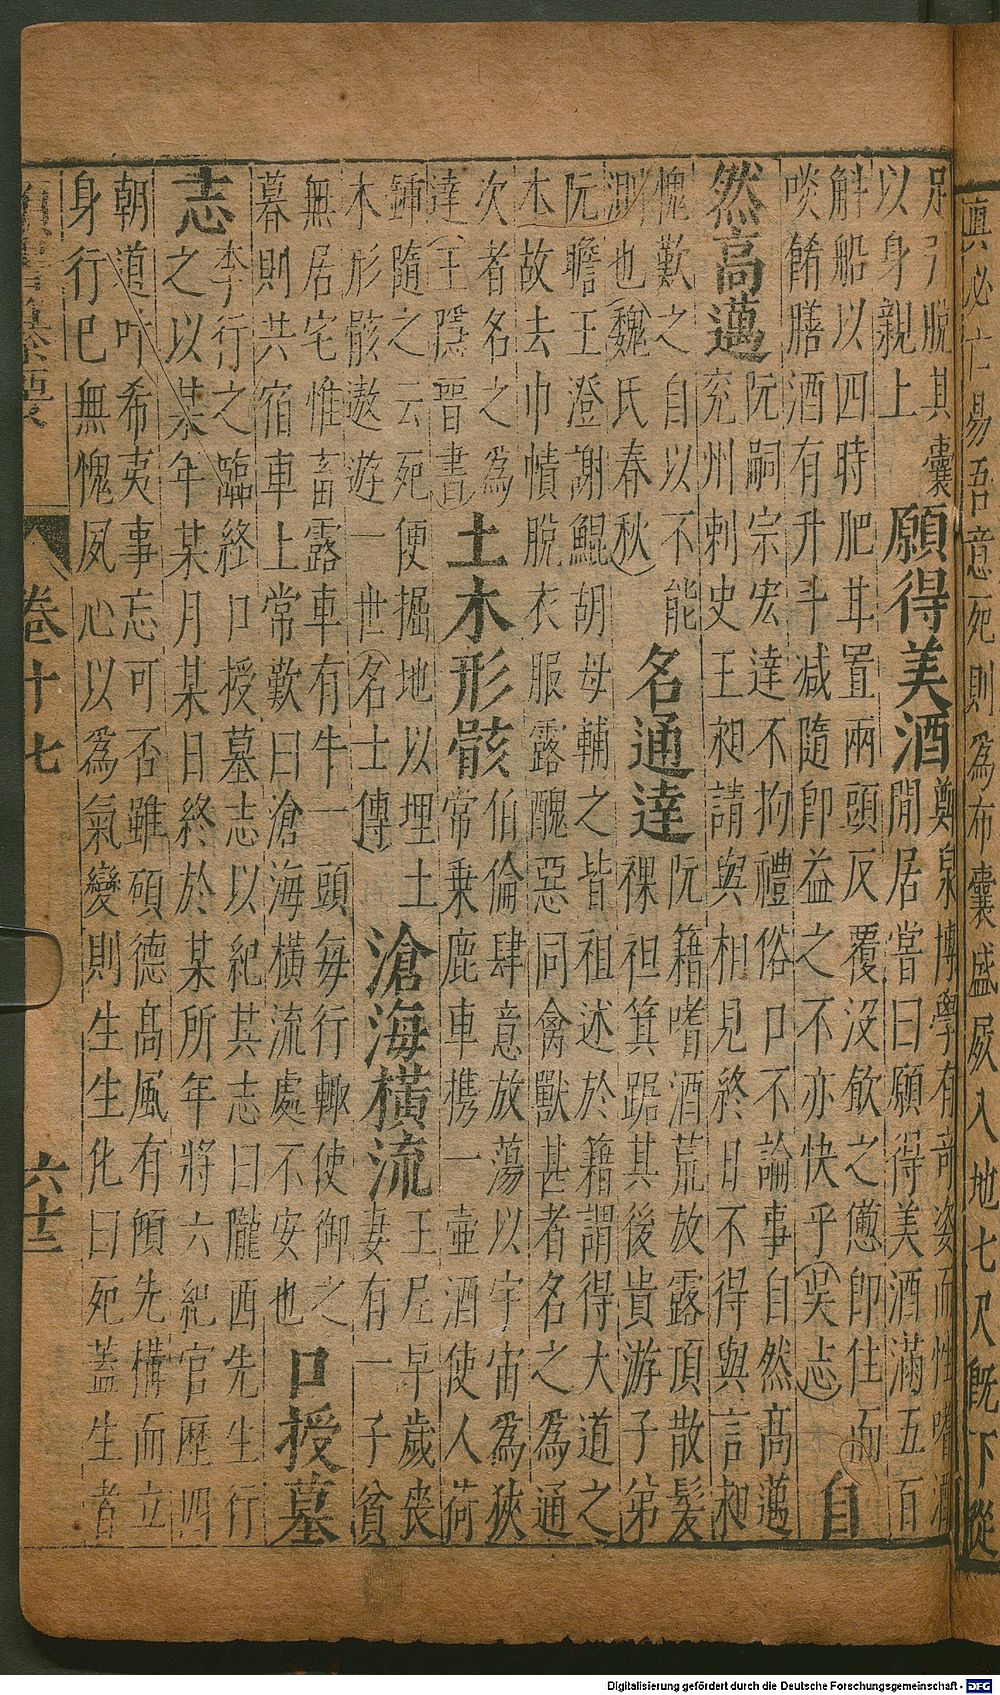 真必亡易吾意死則為布囊盛屍入地七尺既下從
足引脫其囊
以身親上
願得美酒
鄭泉博學有竒姿而性嗜酒
閒居嘗曰願得美酒滿五百
斛船以四時肥其置兩頭反覆沒飲之憊即住而
啖餚膳酒有升斗減隨即益之不亦快乎(吳志)
自
然高邁
阮嗣宗宏達不拘禮俗口不論事自然髙邁
兖州刺史王昶請與相見終日不得與言昶
愧歎之自以不能
測也(魏氏春秋)
名通達
阮籍嗜酒荒放露頂散髮
裸袒箕踞其後貴游子弟
阮瞻王澄謝鯤胡母輔之皆祖述於籍謂得大道之
本故去巾幘脫衣服露醜惡同禽獸甚者名之為通
次者名之為
達(王隱晉書)
土木形骸
伯倫肆意放蕩以宇宙為狹
常乗鹿車携一壷酒使人荷
鍾隨之云死便掘地以埋土
木形骸遨遊一世(名士傳)
滄海橫流
王尼早歲喪
妻有一子貧
無居宅惟畜露車有牛一頭每行輙使御之
暮則共宿車上常歎曰滄海橫流處不安也
口授墓
志
李行之臨終口授墓志以紀其志曰隴西先生行
之以某年某月某日終於某所年將六紀官歷四
朝道叶希夷事忘可否雖碩德髙風有傾先構而立
身行已無愧夙心以為氣變則生生化曰死蓋生者
卷十七
六十三
Digitalisierung gefördert durch die Deutsche Forschungsgemeinschaft - DFG